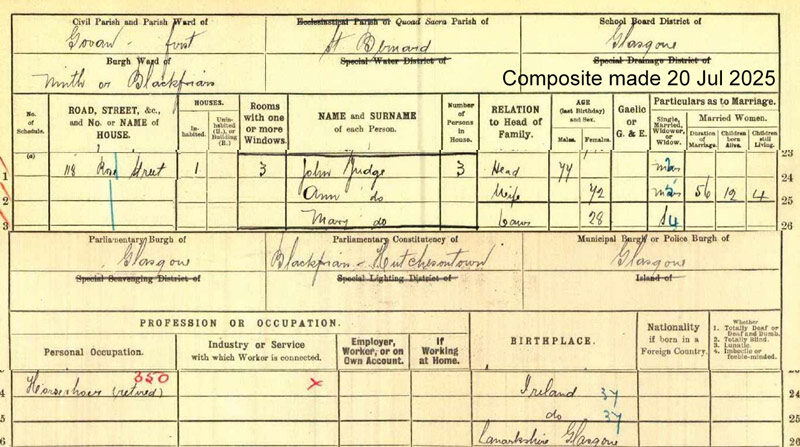 Civil Parish and Parish Ward of
Govan - first
Ecclesiastical Parish or Quoad Sacra Parish of
St Bernard
School Board District of
Glasgow
Burgh Ward of
Ninth or Blackfriars
Special Water District of
Special Drainage District of
Composite made 20 Jul 2025
No. of Schedule.
ROAD, STREET, &c., and No. or NAME of HOUSE.
HOUSES.
Inhabited.
Uninhabited (U.), or Building (B.)
Rooms with one or more Windows.
NAME and SURNAME of each Person.
Number of Persons in House.
RELATION to Head of Family.
AGE (last Birthday) and Sex.
Males.
Females.
Gaelic or G. & E.
Particulars as to Marriage.
Single, Married, Widower, or Widow.
Married Women.
Duration of Marriage.
Children born Alive.
Children still Living.
23
1 (a) 118 Rose Street 1 3 John Judge 3 Head 74 24
2 Ann do Wife 72 56 12 4 25
3 Mary do 28 26
Parliamentary Burgh of
Glasgow
Parliamentary Constituency of
Blackfriars - Hutchesontown
Municipal Burgh or Police Burgh of
Glasgow
Special Scavenging District of
Special Lighting District of
Island of
PROFESSION OR OCCUPATION.
Personal Occupation.
Industry or Service with which Worker is connected.
Employer, Worker, or on Own Account.
If Working at Home.
BIRTHPLACE.
Nationality if born in a Foreign Country.
Whether
1. Totally Deaf or Deaf and Dumb.
2. Totally Blind.
3. Lunatic.
4. Imbecile or feeble-minded.
24 Horseshoer (retired) 350 x Ireland 37
25 do 37
26 Lanarkshire Glasgow